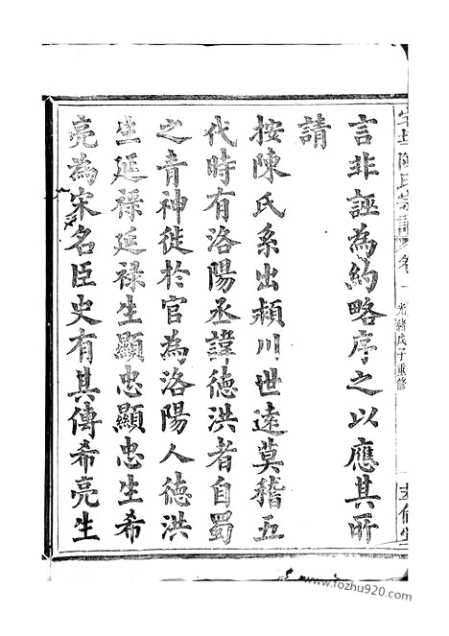 言非誣為約略序之以應其所
請
按陳氏系出潁川世遠莫稽五
代時有洛陽丞諱德洪者自蜀
之青神徙於官為洛陽人德洪
生延祿延祿生顯忠顯忠生希
亮為宋名臣史有其傳希亮生
陳氏宗譜 卷一 光緒戊子重修
www.fozhu920.com